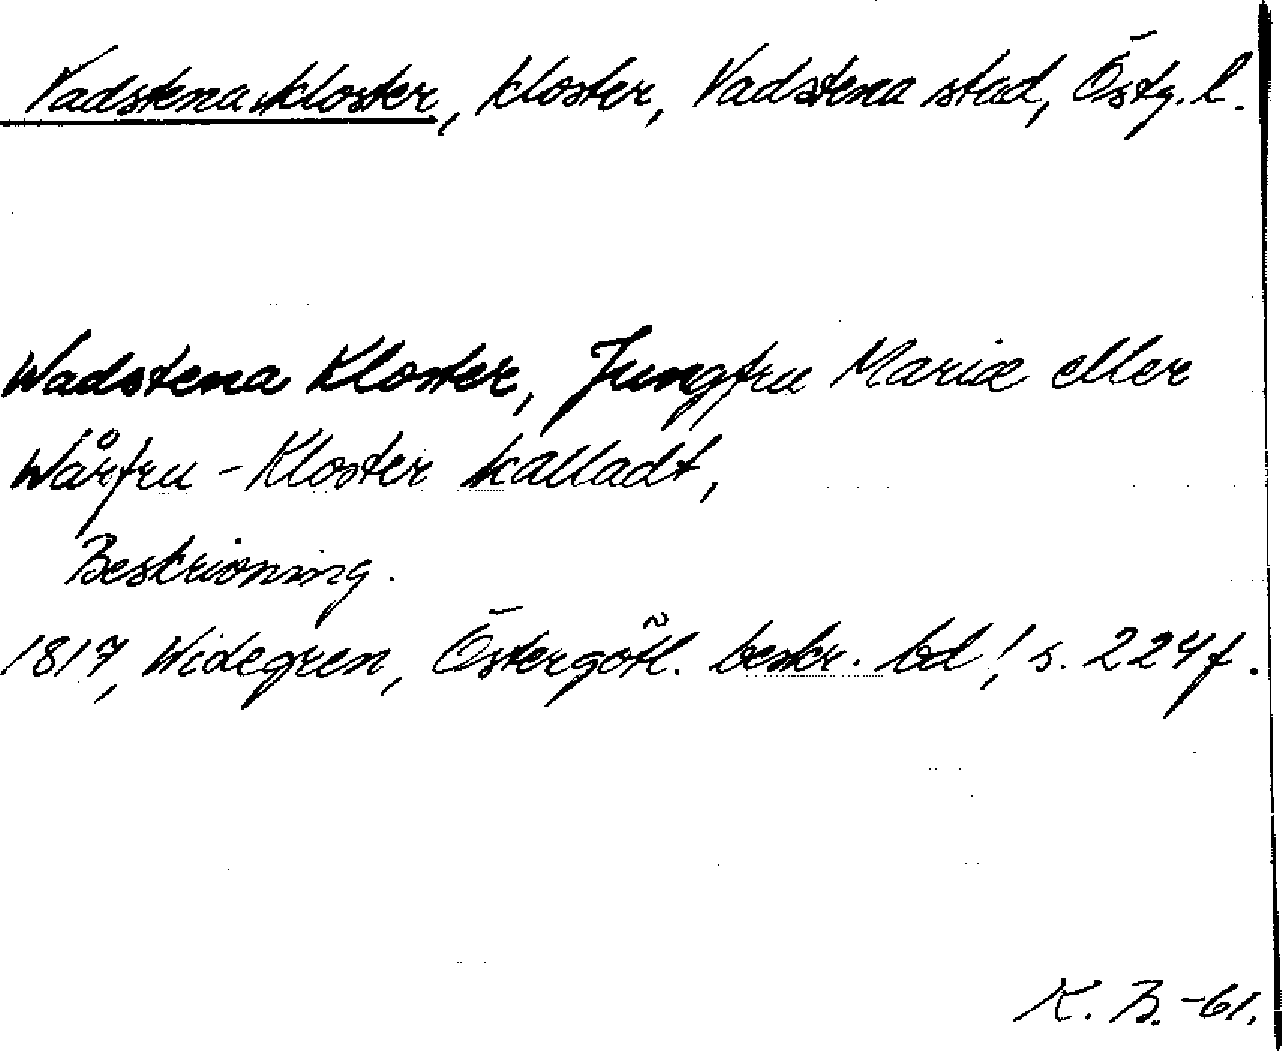 Vadstena kloster, kloster, Vadstena stad, Östg. l.
Wadstena Kloster, Jungfru Mariæ eller
Wårfru-Kloster kalladt,
Beskrivning.
1817, Widegren, Östergötl. beskr. bd 1, s. 224 f.
K. B. -61.